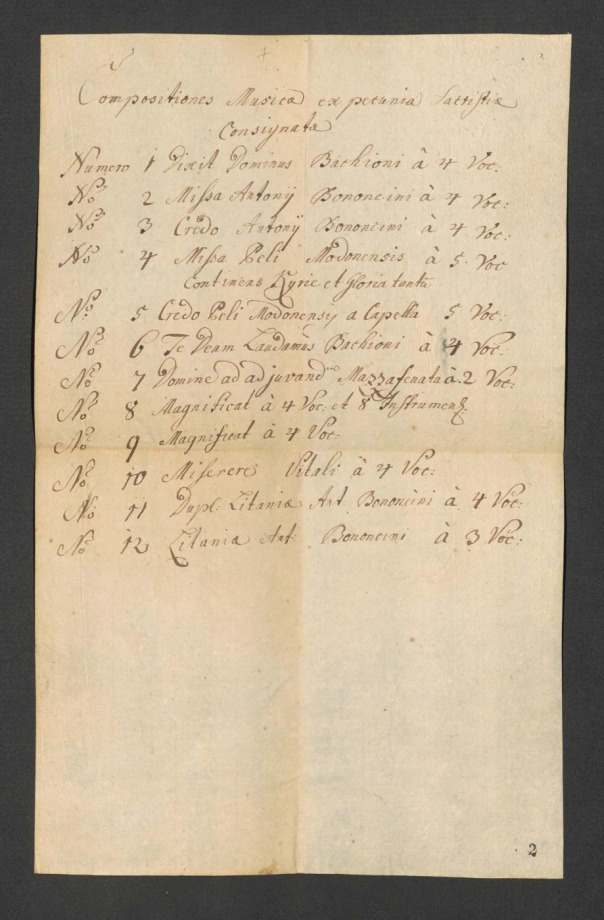 Compositiones Musicæ ex pecunia Sacristiæ
Consignatæ
Numero 1 Dixit Dominus Bachioni à 4 Voc:
No 2 Missa Antonij Bononcini à 4 Voc:
No 3 Credo Antonij Bononcini à 4 Voc:
No 4 Missa Peli Modonensis à 5 Voc
Continens Kyrie et Gloria tantũ
No 5 Credo Peli Modonensy a Capella 5 Voc:
No 6 Te Deam Laudamus Bachioni à 4 Voc:
No 7 Domine ad adjuvand Mazzafenata à 2 Voc:
No 8 Magnificat à 4 Voc: et 8 Instrument:
No 9 Magnificat à 4 Voc:
No 10 Miserere Vitali à 4 Voc:
No 11 Dupl: Litaniæ Ant Bononcini à 4 Voc:
No 12 Litaniæ Ant: Bononcini à 3 Voc:
2